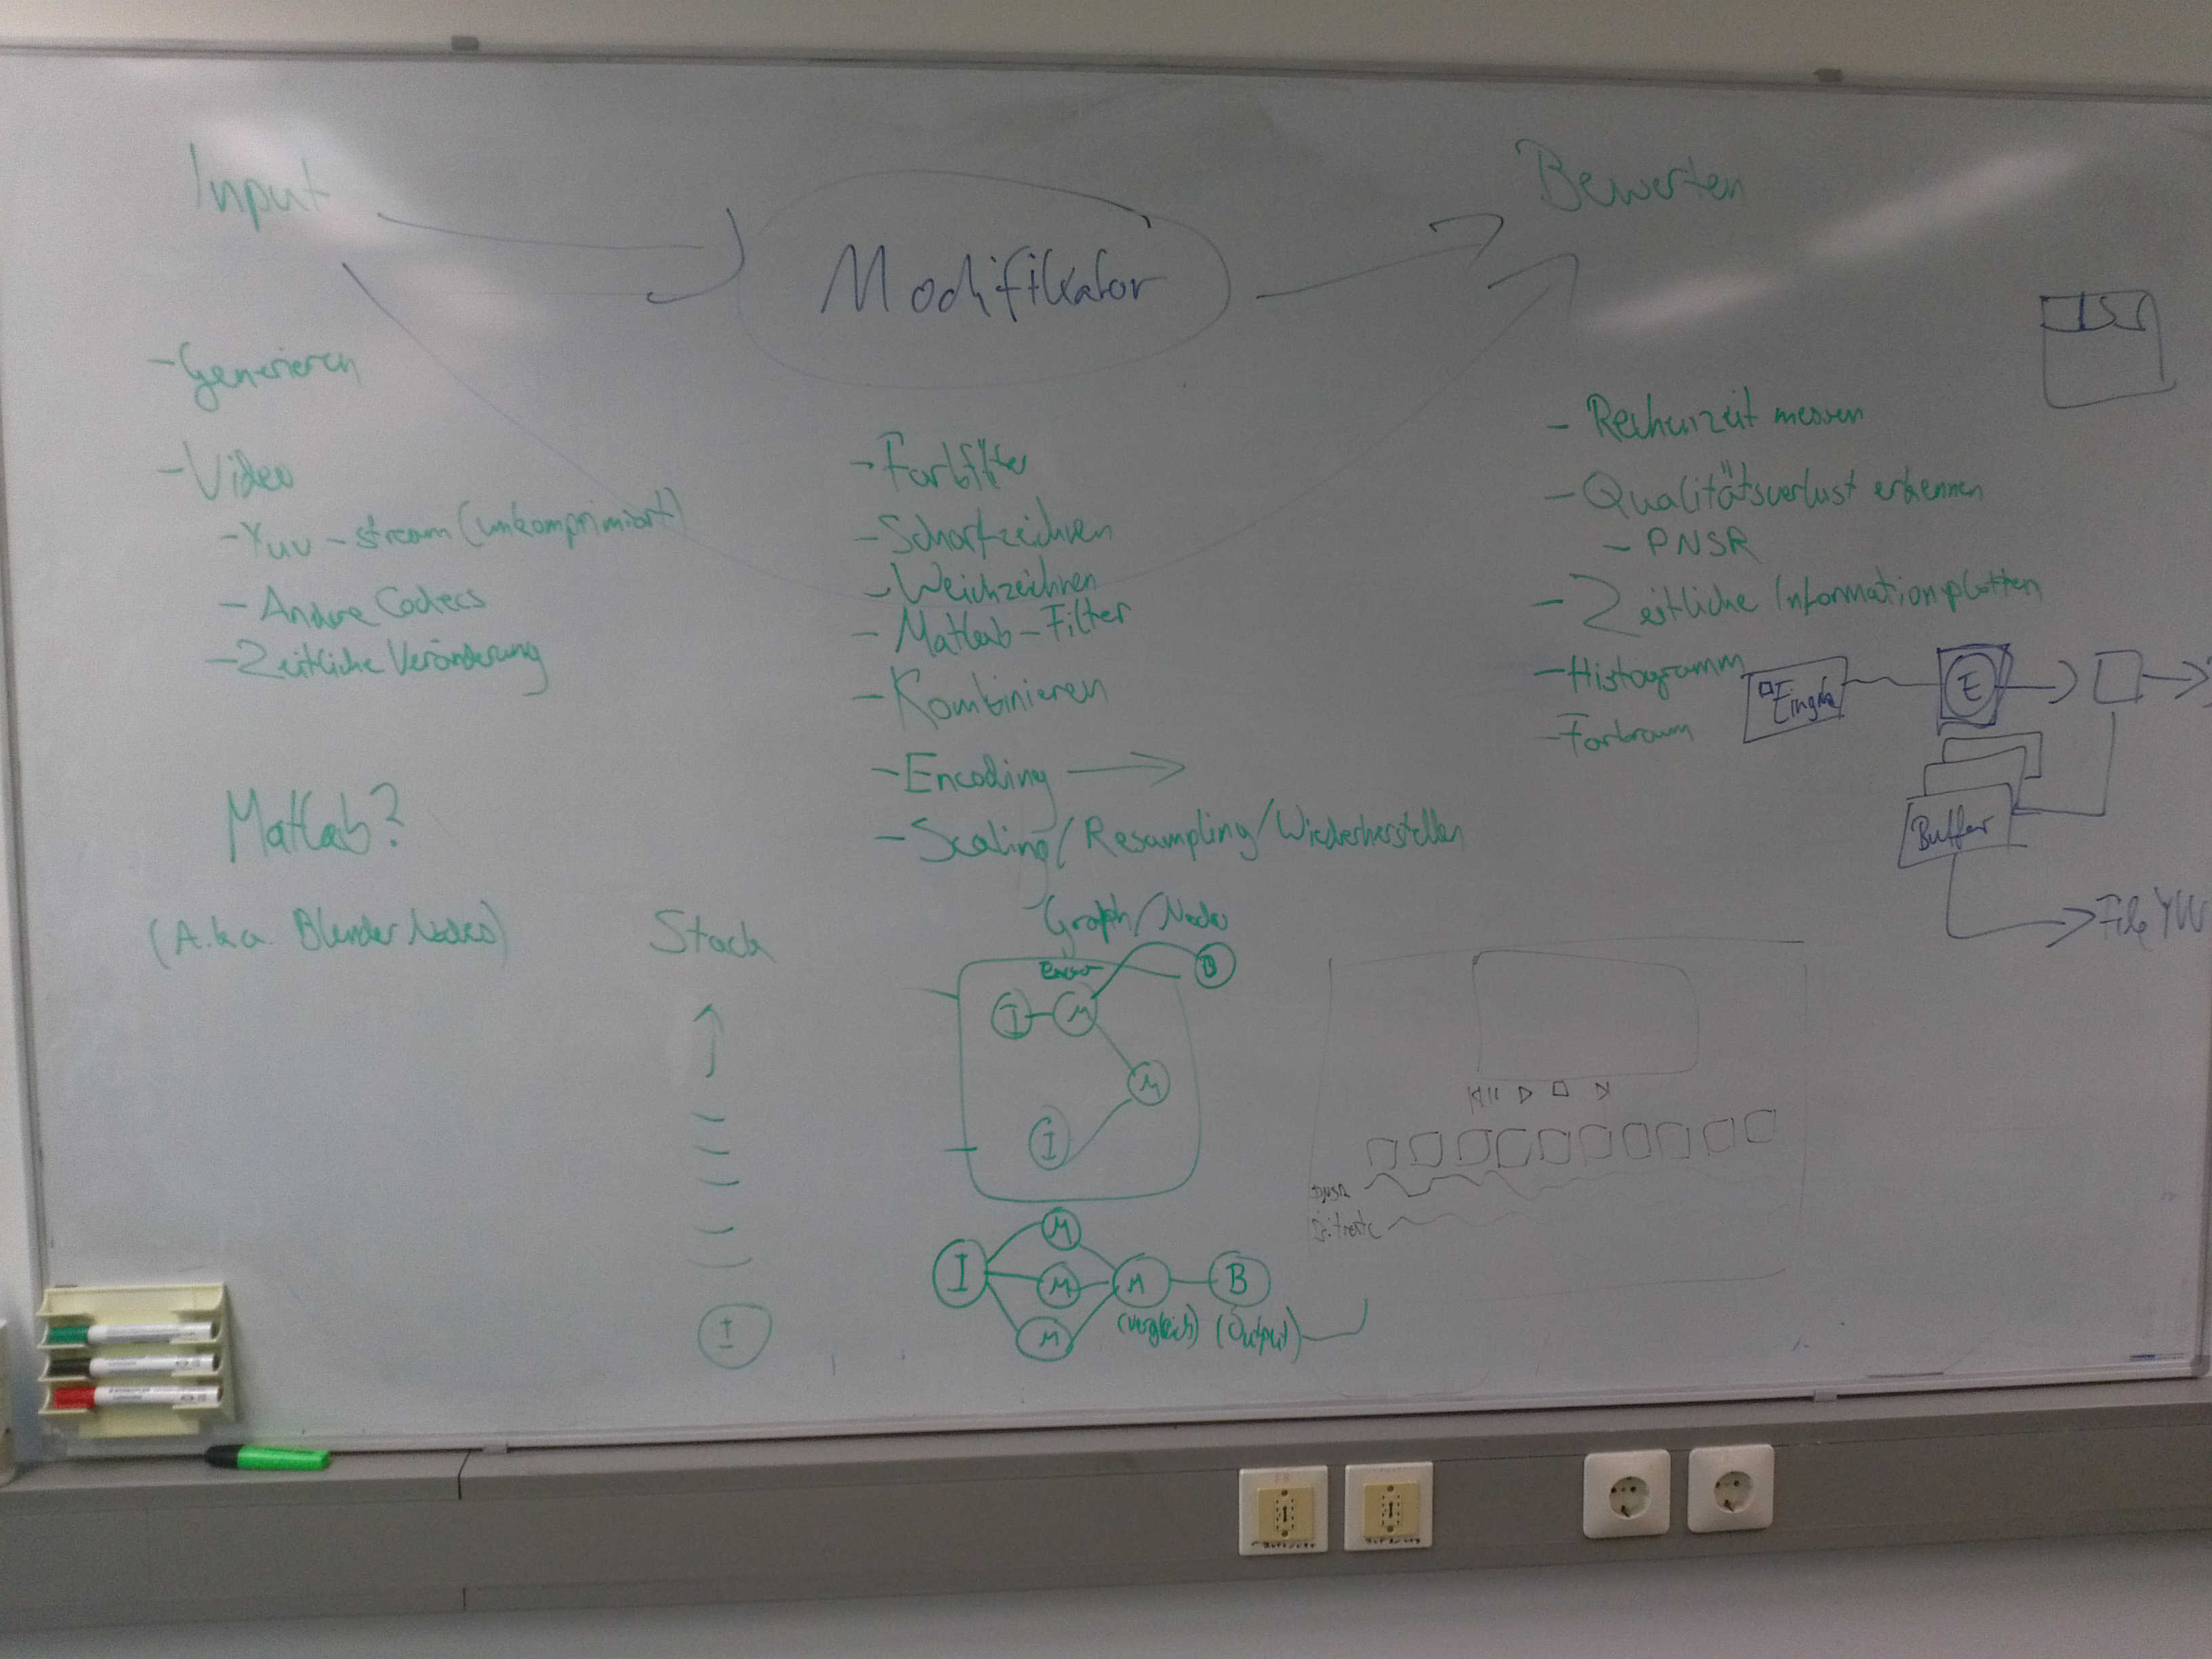 Input
Modifikator
Bewerten
- Generieren
- Video
- Yuv - stream (unkomprimiert)
- Andere Codecs
- Zeitliche Veränderung
Matlab?
(A.k.a. Blender Nodes)
Stack
I
- Farbfilter
- Scharfzeichnen
- Weichzeichnen
- Matlab - Filter
- Kombinieren
- Encoding
- Scaling / Resampling / Wiederherstellen
Graph / Node
B
I M
M
I
M
I M M B
M
(Vergleich) (Output)
- Rechenzeit messen
- Qualitätsverlust erkennen
- PNSR
- Zeitliche Information plotten
- Histogramm
- Farbraum
E
Buffer
File YUV
Bitrate